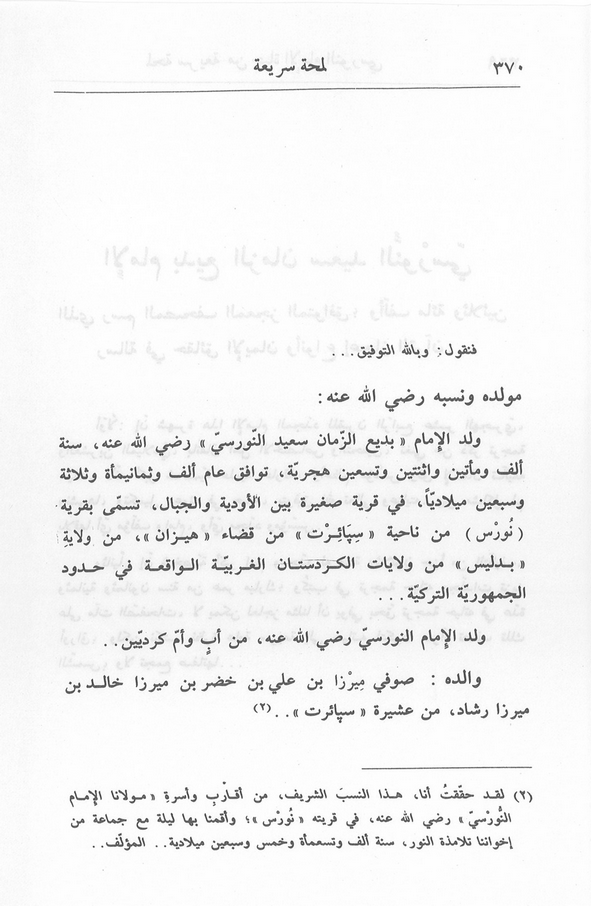 ٣٧٠
لمحة سريعة
فنقول: وبالله التوفيق...
مولده ونسبه رضي الله عنه:
ولد الإمام «بديع الزّمان سعيد النّورسيّ» رضي الله عنه، سنة
ألف ومأتين واثنتين وتسعين هجريّة، توافق عام ألف وثمانيمأة وثلاثة
وسبعين ميلاديّاً، في قرية صغيرة بين الأودية والجبال، تسمّى بقرية
(نُورْس) من ناحية «سِپَائِرْت» من قضاء «هيزان»، من ولايةِ
«بدليس» من ولايات الكردستان الغربيّة الواقعة في حدود
الجمهوريّة التركيّة...
ولد الإمام النورسيّ رضي الله عنه، من أبٍ وأمّ كرديّين..
والده: صوفي مِيرْزا بن علي بن خضر بن ميرزا خالد بن
ميرزا رشاد، من عشيرة «سپائرت»..(٢)
(٢) لقد حقّقتُ أنا، هذا النسبَ الشريف، من أقارْبِ وأسرةِ «مولانا الإمام
النُّورْسيّ» رضي الله عنه، في قريته «نُورْس»؛ وأقمنا بها ليلة مع جماعة من
إخواننا تلامذة النور، سنة ألف وتسعمأة وخمس وسبعين ميلادية.. المؤلّف..